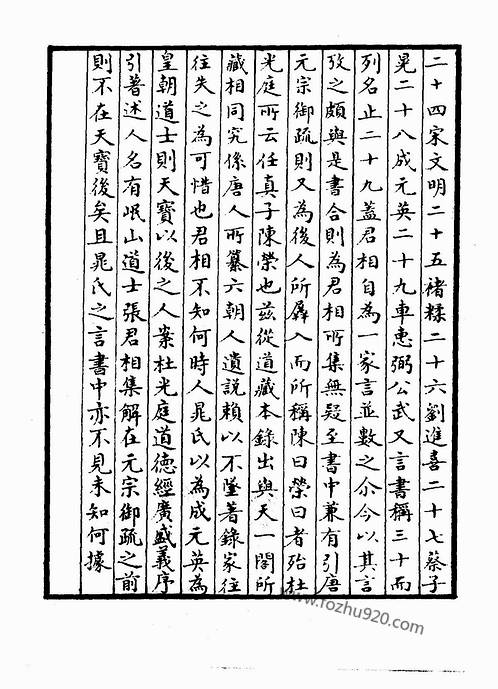 二十四宋文明二十五褚糅二十六劉進喜二十七蔡子
晃二十八成元英二十九車惠弼公武又言書稱三十而
列名止二十九蓋君相自為一家言並數之尒今以其言
攷之頗與是書合則為君相所集無疑至書中兼有引唐
元宗御疏則又為後人所羼入而所稱陳曰榮曰者殆杜
光庭所云任真子陳榮也茲從道藏本錄出與天一閣所
藏相同究係唐人所纂六朝人遺說賴以不墜著錄家往
往失之為可惜也君相不知何時人晁氏以為成元英為
皇朝道士則天寶以後之人案杜光庭道德經廣盛義序
引著述人名有岷山道士張君相集解在元宗御疏之前
則不在天寶後矣且晁氏之言書中亦不見未知何據
www.fozhu920.com